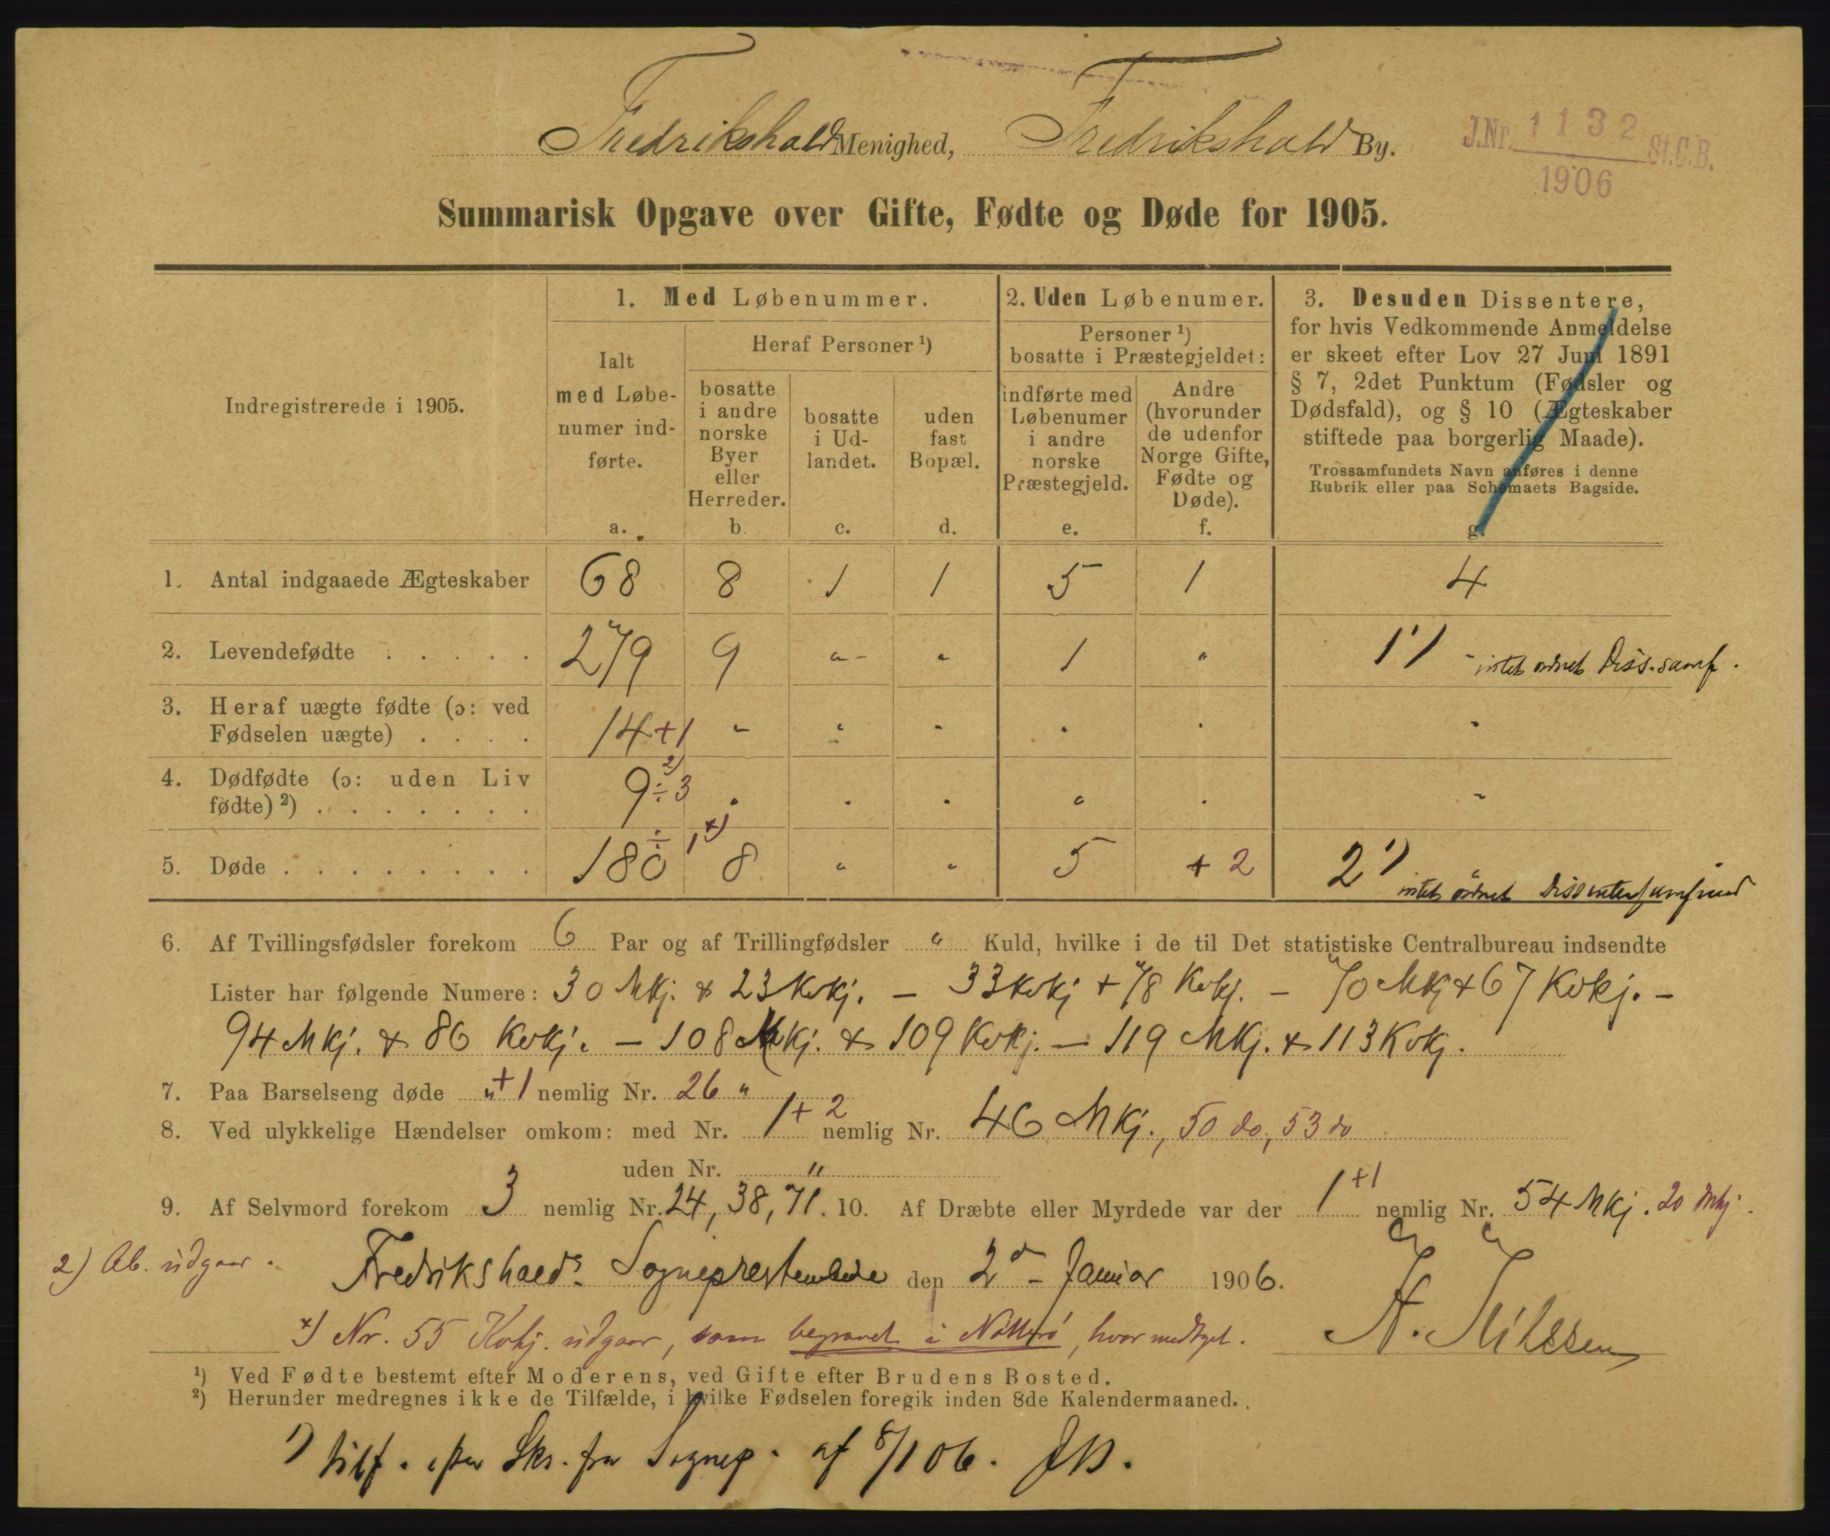 Fredrikshald Menighed, Fredrikshald By.
J.Nr. 1132 St.C.B.
1906
Summarisk Opgave over Gifte, Fødte og Døde for 1905.
Indregistrerede i 1905.
1. Med Løbenummer.
Ialt
med Løbe-
numer ind-
førte.
a.
Heraf Personer ¹)
bosatte
i andre
norske
Byer
eller
Herreder.
b.
bosatte
i Ud-
landet.
c.
uden
fast
Bopæl.
d.
2. Uden Løbenumer.
Personer ¹)
bosatte i Præstegjeldet:
indførte med
Løbenumer
i andre
norske
Præstegjeld.
e.
Andre
(hvorunder
de udenfor
Norge Gifte,
Fødte og
Døde).
f.
3. Desuden Dissentere,
for hvis Vedkommende Anmeldelse
er skeet efter Lov 27 Juni 1891
§ 7, 2det Punktum (Fødsler og
Dødsfald), og § 10 (Ægteskaber
stiftede paa borgerlig Maade).
Trossamfundets Navn anføres i denne
Rubrik eller paa Schemaets Bagside.
g.
1. Antal indgaaede Ægteskaber 68 8 1 1 5 1 4
2. Levendefødte . . . . . 279 9 „ „ 1 „ 1 ¹) - intet ordnet Diss.samf.
3. Heraf uægte fødte (ɔ: ved
Fødselen uægte) . . . . 14 +1 „ „ „ „ „ „
4. Dødfødte (ɔ: uden Liv
fødte) ²) . . . . . . . 9 ÷ 3 ²) „ „ „ „ „ „
5. Døde . . . . . . . . 180 ÷ 1 ˣ) 8 „ „ 5 + 2 2 ¹) intet ordnet Dissentersamfund
6. Af Tvillingsfødsler forekom 6 Par og af Trillingfødsler „ Kuld, hvilke i de til Det statistiske Centralbureau indsendte
Lister har følgende Numere: 30 Mkj. + 23 Kvkj. – 33 Kvkj + 78 Kvkj. – 70 Mkj + 67 Kvkj. –
94 Mkj. + 86 Kvkj. – 108 Mkj. + 109 Kvkj. – 119 Mkj. + 113 Kvkj.
7. Paa Barselseng døde „ +1 nemlig Nr. 26 „
8. Ved ulykkelige Hændelser omkom: med Nr. 1 + 2 nemlig Nr. 46 Mkj., 50 do, 53 do
uden Nr. „
9. Af Selvmord forekom 3 nemlig Nr. 24, 38, 71. 10. Af Dræbte eller Myrdede var der 1 +1 nemlig Nr. 54 Mkj. 20 Mkj.
2) Ab. udgaar.
Fredrikshalds Sogneprestembede den 2d – Januar 1906.
A. Nilssen
ˣ) Nr. 55 Kvkj. udgaar, som begravet i Nøtterø, hvor medtget.
¹) Ved Fødte bestemt efter Moderens, ved Gifte efter Brudens Bosted.
²) Herunder medregnes ikke de Tilfælde, i hvilke Fødselen foregik inden 8de Kalendermaaned.
¹) tilf. efter Skr. fra Sognep. af 8/1 06.